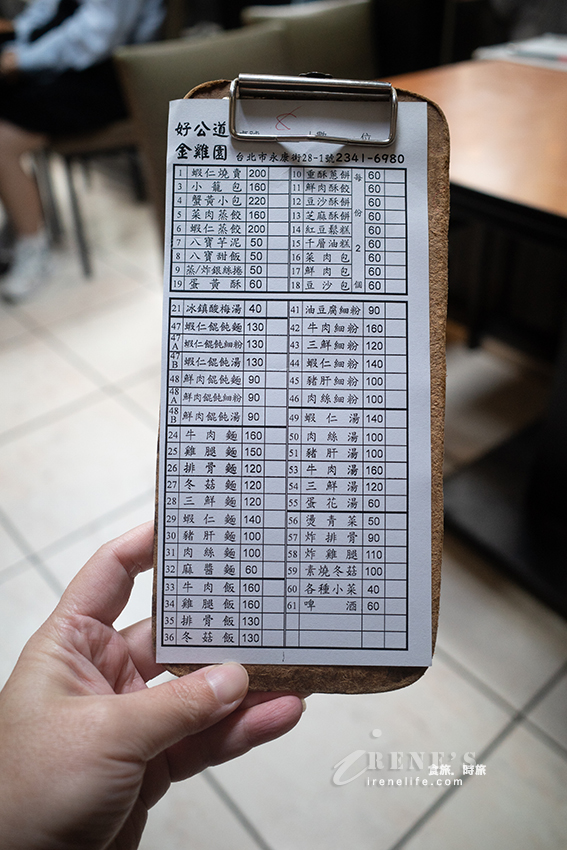 好公道
金雞園 台北市永康街28-1號2341-6980
1 蝦仁燒賣 200
3 小籠包 160
4 蟹黃小包 220
5 菜肉蒸餃 160
6 蝦仁蒸餃 200
7 八寶芋泥 50
8 八寶甜飯 50
9 蒸/炸銀絲捲 50
19 蛋黃酥 60
10 重酥蔥餅 60
11 鮮肉酥餃 60
12 豆沙酥餅 60
13 芝麻酥餅 60
14 紅豆鬆糕 60
15 千層油糕 60
16 菜肉包 60
17 鮮肉包 60
18 豆沙包 60
每份2個
21 冰鎮酸梅湯 40
47 蝦仁餛飩麵 130
47A 蝦仁餛飩細粉 130
47B 蝦仁餛飩湯 130
48 鮮肉餛飩麵 90
48A 鮮肉餛飩細粉 90
48B 鮮肉餛飩湯 90
24 牛肉麵 160
25 雞腿麵 150
26 排骨麵 120
27 冬菇麵 120
28 三鮮麵 120
29 蝦仁麵 140
30 豬肝麵 100
31 肉絲麵 100
32 麻醬麵 60
33 牛肉飯 160
34 雞腿飯 160
35 排骨飯 130
36 冬菇飯 130
41 油豆腐細粉 90
42 牛肉細粉 160
43 三鮮細粉 120
44 蝦仁細粉 140
45 豬肝細粉 100
46 肉絲細粉 100
49 蝦仁湯 140
50 肉絲湯 100
51 豬肝湯 100
53 牛肉湯 160
54 三鮮湯 120
55 蛋花湯 60
56 燙青菜 50
57 炸排骨 90
58 炸雞腿 110
59 素燒冬菇 100
60 各種小菜 40
61 啤酒 60
IRENE'S
食旅．時旅
irenelife.com